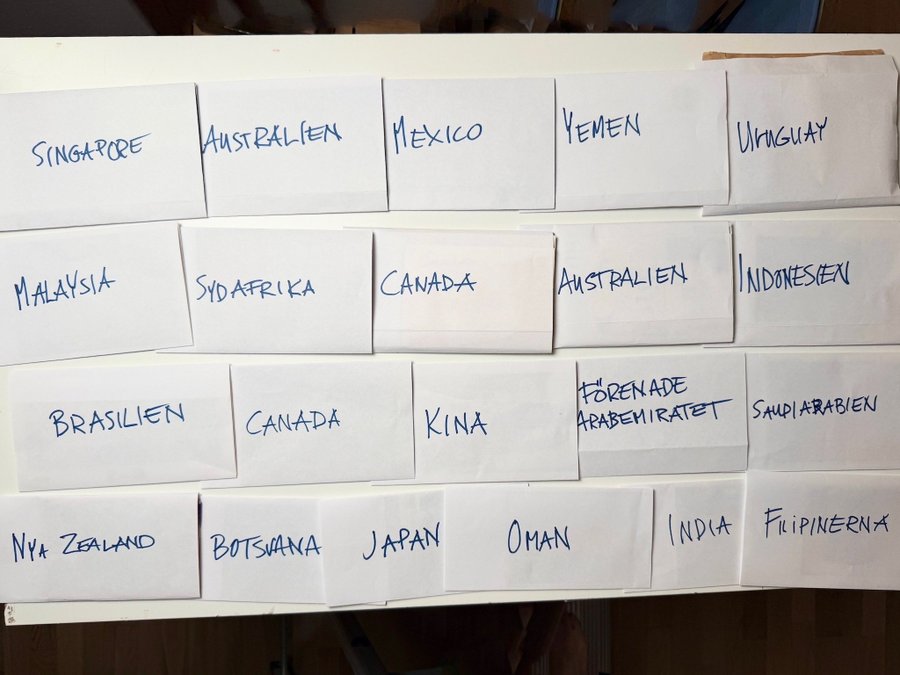 SINGAPORE
AUSTRALIEN
MEXICO
YEMEN
URUGUAY
MALAYSIA
SYDAFRIKA
CANADA
AUSTRALIEN
INDONESIEN
BRASILIEN
CANADA
KINA
FÖRENADE
ARABEMIRATET
SAUDIARABIEN
NYA ZEALAND
BOTSVANA
JAPAN
OMAN
INDIA
FILIPINERNA